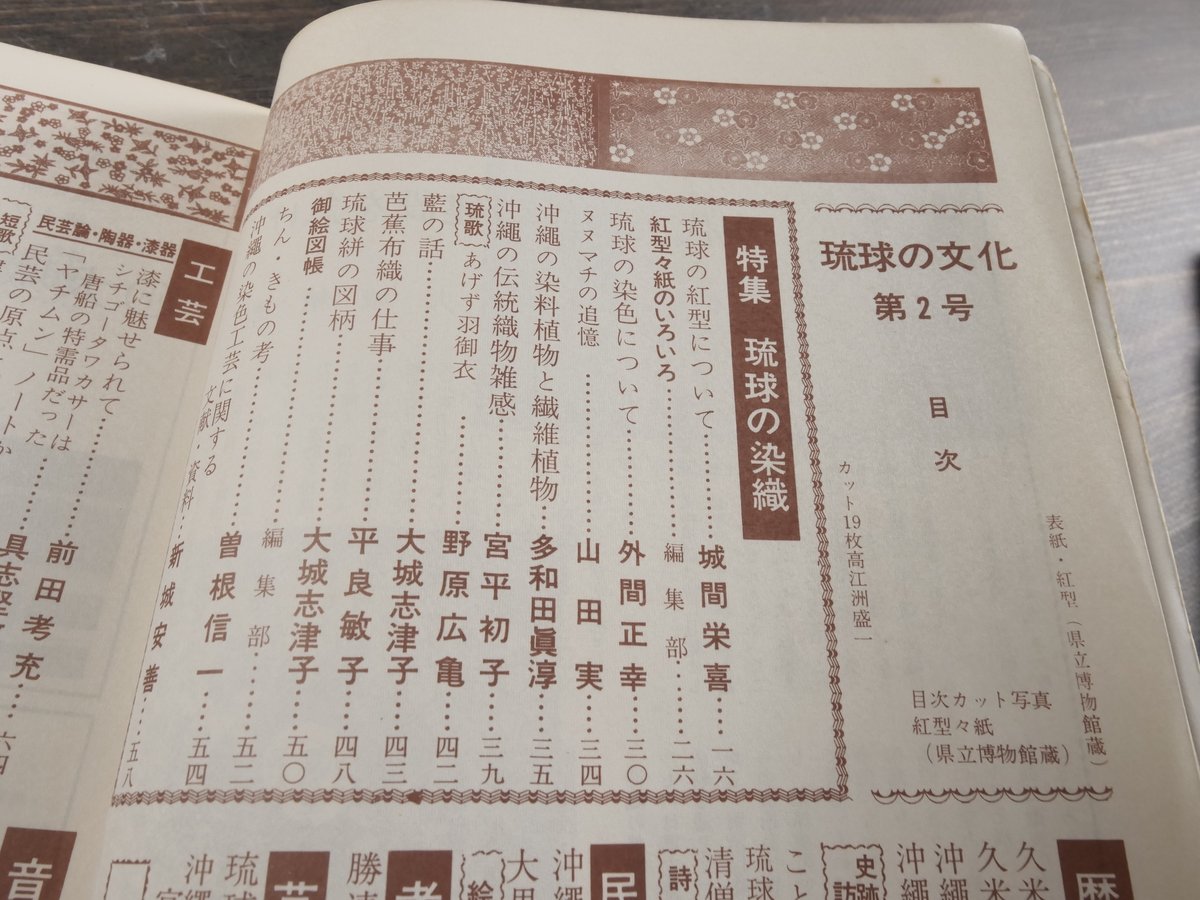 琉球の文化
第2号
目次
表紙・紅型(県立博物館蔵)
カット19枚高江洲盛一
目次カット写真
紅型々紙
(県立博物館蔵)
特集 琉球の染織
琉球の紅型について……城間栄喜……一六
紅型々紙のいろいろ……編集部……二六
琉球の染色について……外間正幸……三〇
ヌヌマチの追憶……山田実……三四
沖繩の染料植物と繊維植物……多和田眞淳……三五
沖繩の伝統織物雑感……宮平初子……三九
琉歌 あげず羽御衣……野原広亀……四二
藍の話……大城志津子……四三
芭蕉布織の仕事……平良敏子……四八
琉球絣の図柄……大城志津子……五〇
御絵図帳……編集部……五二
ちん・きもの考……曽根信一……五四
沖繩の染色工芸に関する
文献・資料……新城安善……五八
工芸
民芸論・陶器・漆器
漆に魅せられて……前田考充……六四
シチゴータワカサーは
唐船の特需品だった
「ヤチムン」ノートか
民芸の原点
短歌
歴
久米
久米
沖繩
沖繩
史跡
訪
こと
琉球
清僧
詩
民
沖繩
大里
絵
考
勝連
芸
琉球
沖繩
音